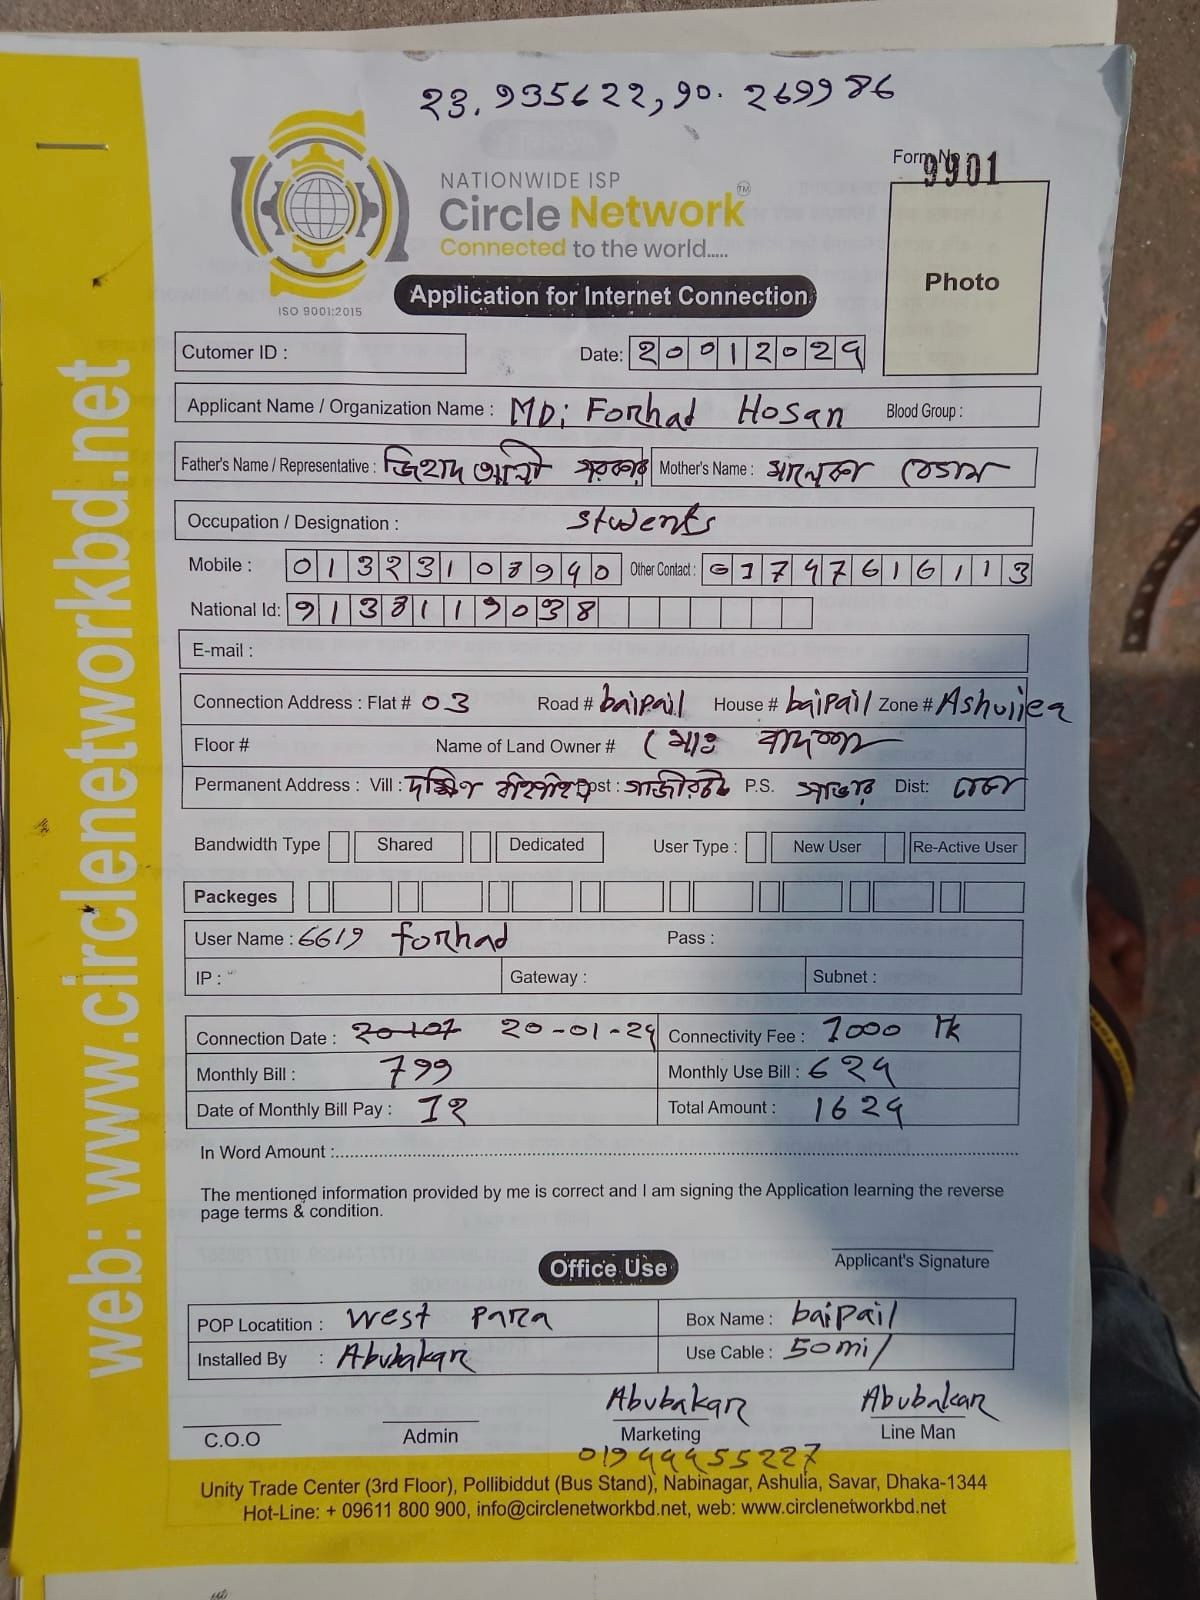 23.935622,90.269986
Form No : 9901
NATIONWIDE ISP
Circle Network™
Connected to the world.....
ISO 9001:2015
Application for Internet Connection
Photo
Cutomer ID :
Date: 20012024
Applicant Name / Organization Name : MD; Forhad Hosan Blood Group :
Father's Name / Representative : জিহাদ আলী সরকার Mother's Name : মালেকা বেগম
Occupation / Designation : students
Mobile : 01323108940 Other Contact : 01747616113
National Id: 9138119038
E-mail :
Connection Address : Flat # 03 Road # baipail House # baipail Zone # Ashuliea
Floor # Name of Land Owner # মোঃ বাদশা
Permanent Address : Vill : দক্ষিণ বাইপাইল Post : গাজীরচট P.S. সাভার Dist: ঢাকা
Bandwidth Type Shared Dedicated User Type : New User Re-Active User
Packeges
User Name : 6619 forhad Pass :
IP : Gateway : Subnet :
Connection Date : 20-01-24 Connectivity Fee : 1000 Tk
Monthly Bill : 799 Monthly Use Bill : 624
Date of Monthly Bill Pay : 12 Total Amount : 1624
In Word Amount :
The mentioned information provided by me is correct and I am signing the Application learning the reverse
page terms & condition.
Applicant's Signature
Office Use
POP Locatition : west para Box Name : baipail
Installed By : Abubakar Use Cable : 50mi/
Abubakar Abubakar
C.O.O Admin Marketing Line Man
01944455227
Unity Trade Center (3rd Floor), Pollibiddut (Bus Stand), Nabinagar, Ashulia, Savar, Dhaka-1344
Hot-Line: + 09611 800 900, info@circlenetworkbd.net, web: www.circlenetworkbd.net
web: www.circlenetworkbd.net